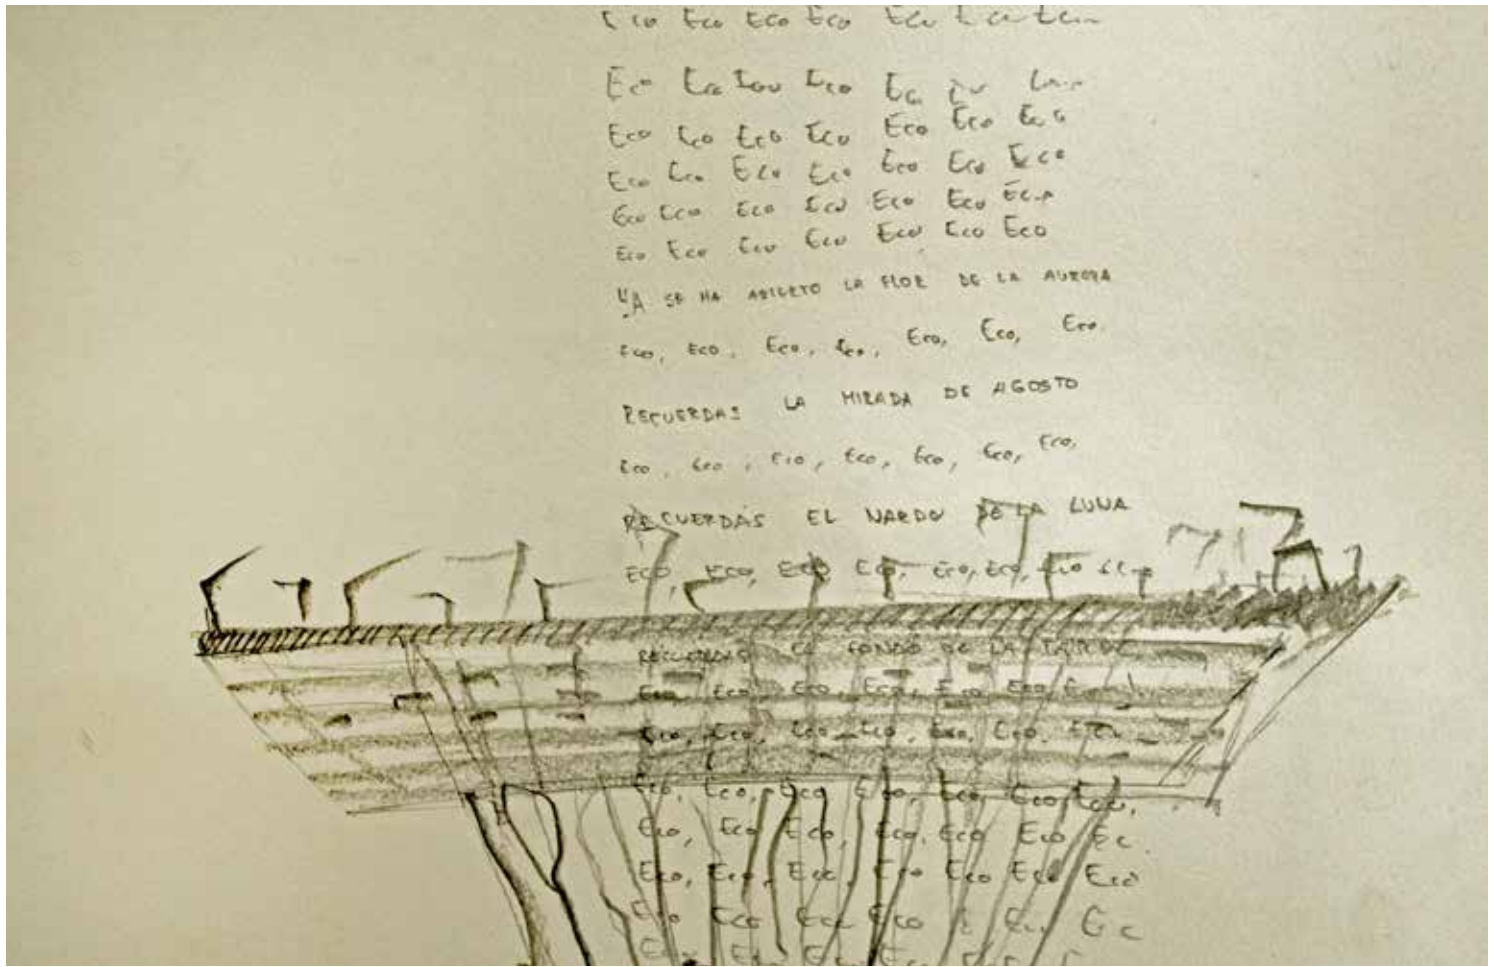 Eco Eco Eco Eco Eco Eco Eco
Eco Eco Eco Eco Eco Eco Eco
Eco Eco Eco Eco Eco Eco Eco
Eco Eco Eco Eco Eco Eco Eco
Eco Eco Eco Eco Eco Eco Eco
Eco Eco Eco Eco Eco Eco Eco
YA SE HA ABIERTO LA FLOR DE LA AURORA
Eco, Eco, Eco, Eco, Eco, Eco, Eco
RECUERDAS LA MIRADA DE AGOSTO
Eco, Eco, Eco, Eco, Eco, Eco, Eco,
RECUERDAS EL NARDO DE LA LUNA
Eco, Eco, Eco Eco, Eco, Eco, Eco
RECUERDAS EL FONDO DE LA TARDE
Eco, Eco, Eco, Eco, Eco, Eco,
Eco, Eco, Eco, Eco, Eco, Eco,
Eco, Eco, Eco Eco, Eco, Eco, Eco,
Eco, Eco, Eco, Eco, Eco Eco Ec
Eco, Eco, Eco, Eco Eco Eco Eco
Eco Eco Eco Eco